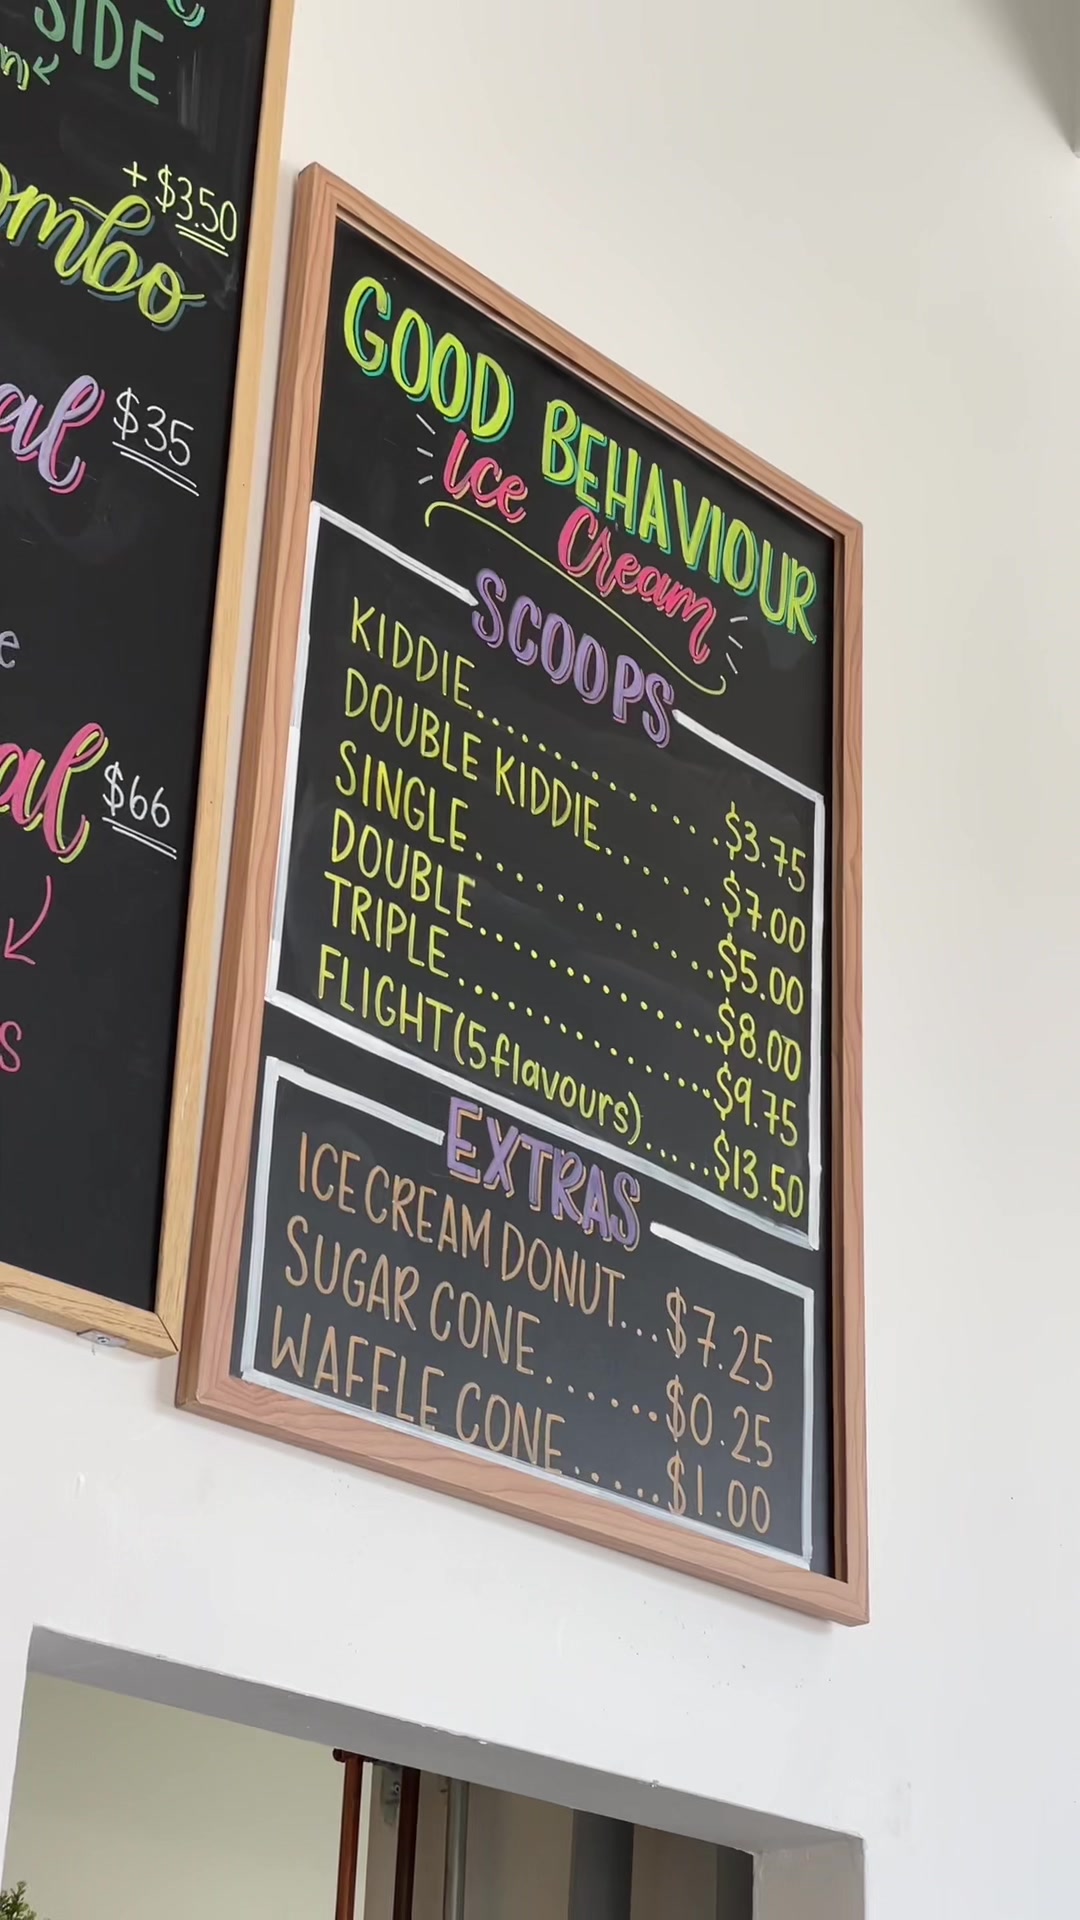 SIDE
+$3.50
ombo
al $35
e
al $66
s
GOOD BEHAVIOUR
Ice Cream
SCOOPS
KIDDIE.................$3.75
DOUBLE KIDDIE.......$7.00
SINGLE..............$5.00
DOUBLE..............$8.00
TRIPLE................$9.75
FLIGHT(5 flavours)......$13.50
EXTRAS
ICE CREAM DONUT...$7.25
SUGAR CONE......$0.25
WAFFLE CONE.....$1.00